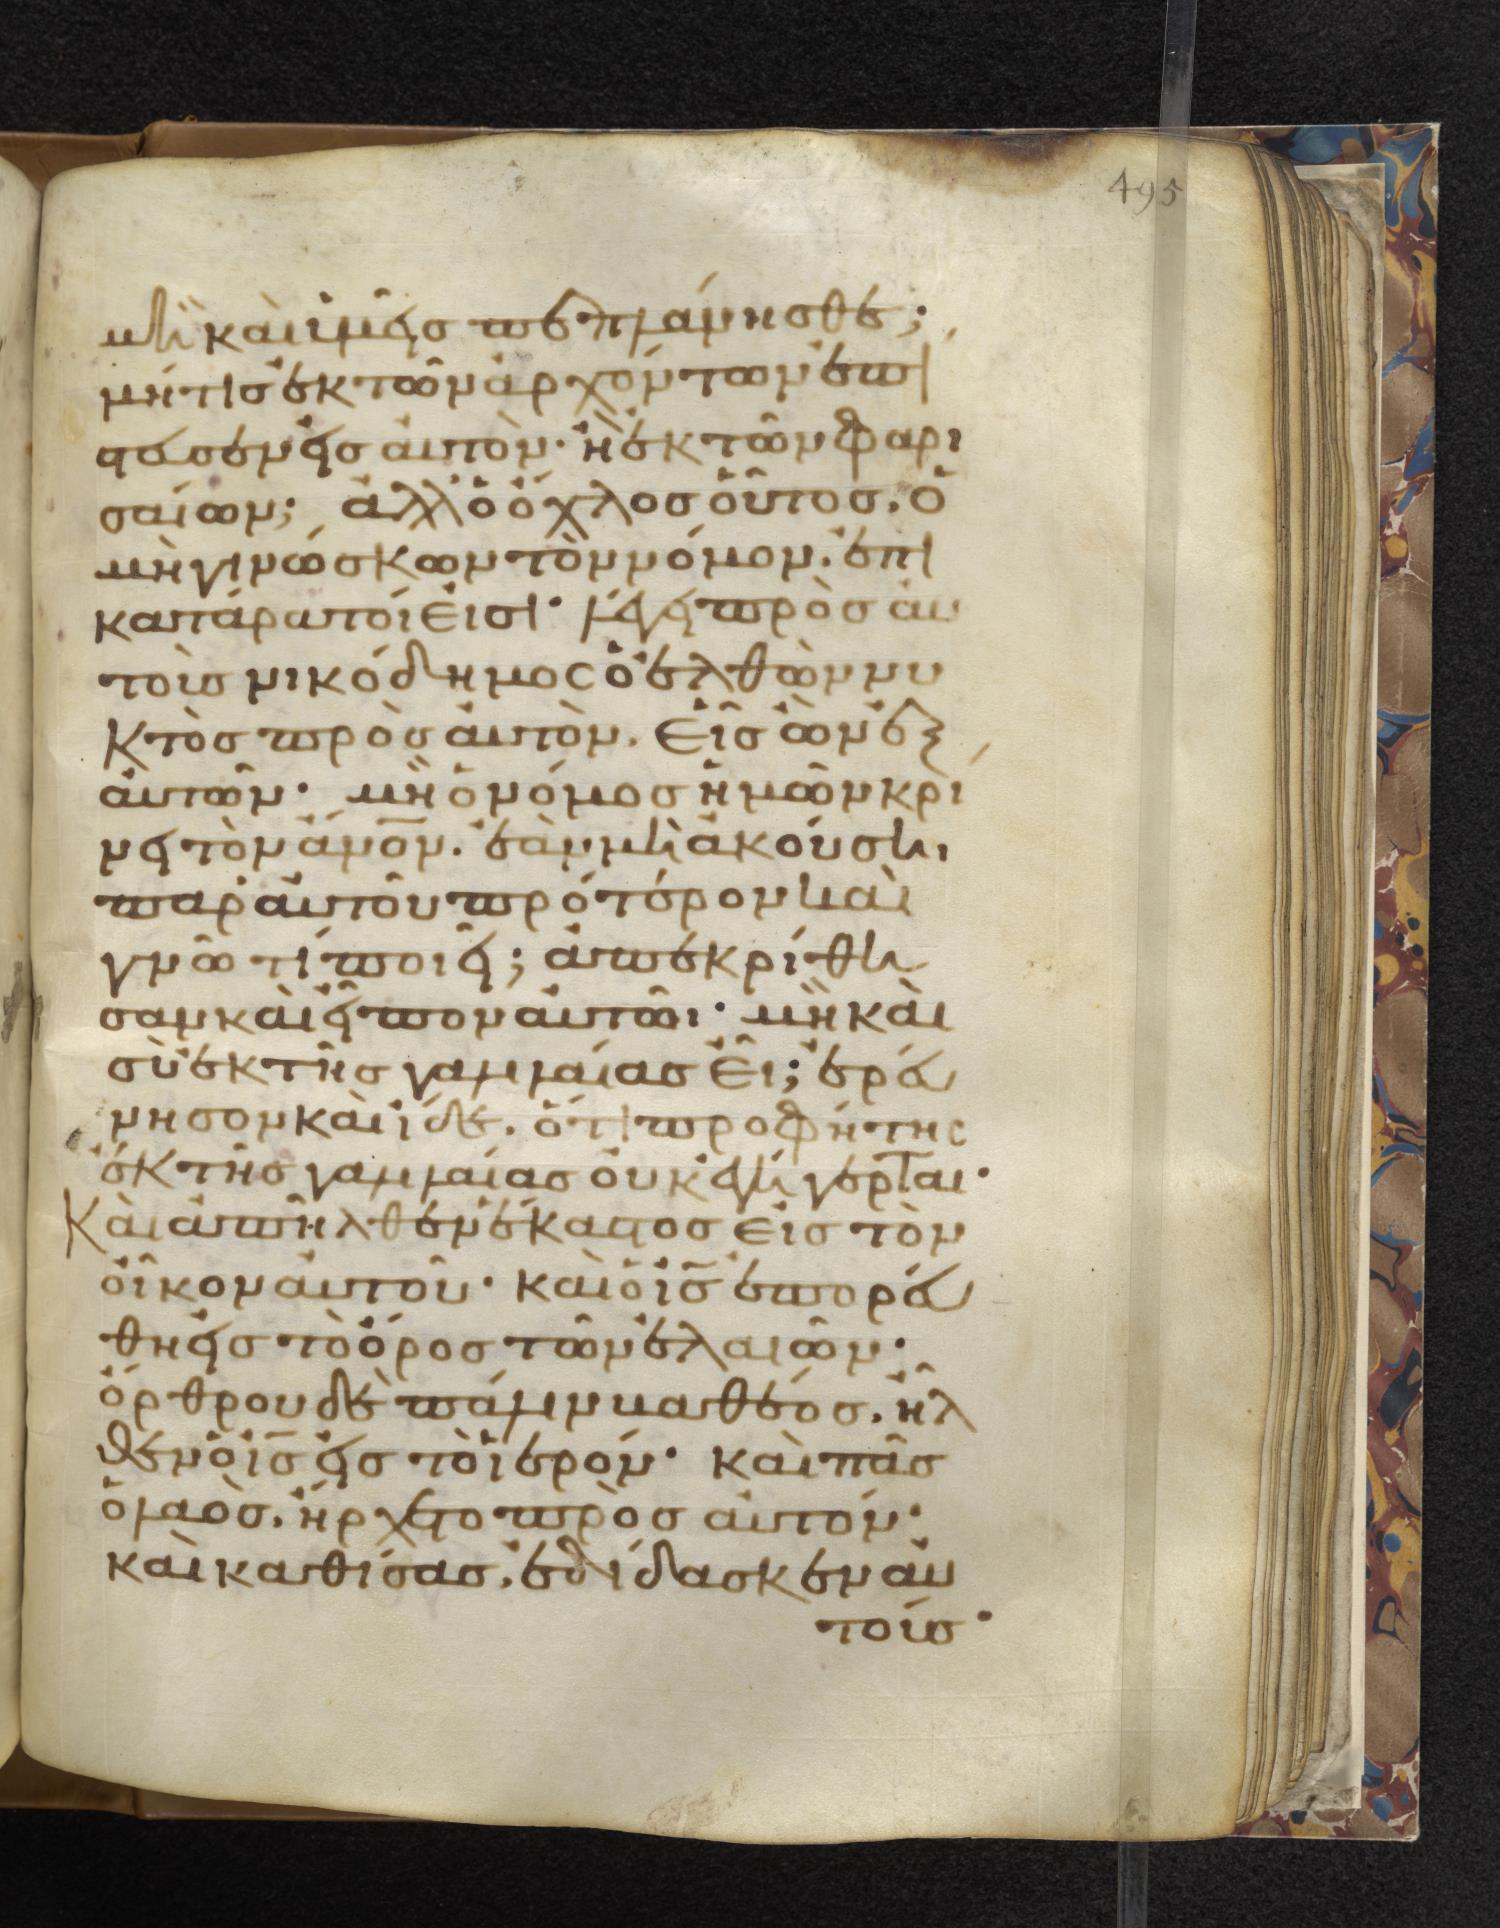 495
μὴ καὶ ὑμεῖς πεπλάνησθε;
μήτις ἐκ τῶν ἀρχόντων ἐπί
στευσεν εἰς αὐτὸν· ἢ ἐκ τῶν φαρι
σαίων; ἀλλ' ὁ ὄχλος οὗτος. ὁ
μὴ γινώσκων τὸν νόμον. ἐπι
κατάρατοί εἰσι· λέγει πρὸς αὐ
τοὺς νικόδημος ὁ ἐλθὼν νυ
κτὸς πρὸς αὐτὸν. εἷς ὢν ἐξ
αὐτῶν· μὴ ὁ νόμος ἡμῶν κρί
νει τὸν ἄνον. ἐὰν μὴ ἀκούσηι
παρ' αὐτοῦ πρότερον καὶ
γνῶ τί ποιεῖ; ἀπεκρίθη
σαν καὶ εἶπον αὐτῶι· μὴ καὶ
σὺ ἐκ τῆς γαλιλαίας εἶ; ἐρεύ
νησον καὶ ἴδε. ὅτι προφήτης
ἐκ τῆς γαλιλαίας οὐκ ἐγήγερται·
Καὶ ἀπῆλθεν ἕκαστος εἰς τὸν
οἶκον αὐτοῦ· καὶ ὁ ις ἐπορεύ
θη εἰς τὸ ὄρος τῶν ἐλαιῶν·
ὄρθρου δὲ πάλιν καθεός. ἦλ
θεν ὁ ις εἰς τὸ ἱερόν· καὶ πᾶς
ὁ λαὸς. ἤρχετο πρὸς αὐτόν·
καὶ καθίσας. ἐδίδασκεν αὐ
τούς·